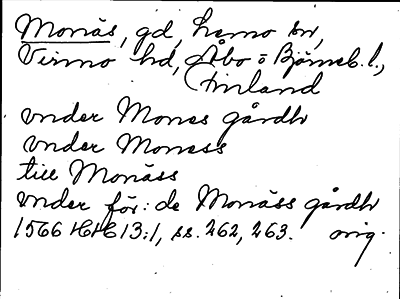 Monäs, gd, Lemo sn,
Virmo hd, Åbo o Björneb. l.,
Finland
vnder Mones gårdh
vnder Moness
till Monäss
vnder för: de Monäss gårdh
1566 HH 13:1, ss. 262, 263. orig.